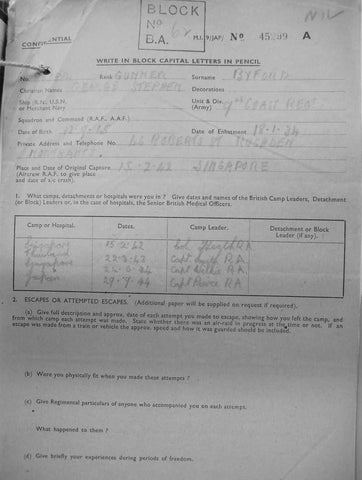 BLOCK
No
B.A.
NIL
CONFIDENTIAL
M.I.9/JAP/ No 45289 A
WRITE IN BLOCK CAPITAL LETTERS IN PENCIL
No. Rank GUNNER Surname BYFORD
Christian Names GEORGE STEPHEN Decorations
Ship (R.N., U.S.N. or Merchant Navy) Unit & Div. (Army) COAST REGT
Squadron and Command (R.A.F., A.A.F.)
Date of Birth Date of Enlistment 18-1-34
Private Address and Telephone No. ROBERTS ST RUSHDEN
NORTHANTS
Place and Date of Original Capture 15-2-42 SINGAPORE
(Aircrew R.A.F. to give place
and date of a/c crash).
1. What camps, detachments or hospitals were you in? Give dates and names of the British Camp Leaders, Detachment
(or Block) Leaders or, in the cast of hospitals, the Senior British Medical Officers.
Camp or Hospital. Dates. Camp Leader. Detachment or Block Leader (if any).
Singapore 15-2-42 Col RA
Thailand Capt Smith RA
Singapore Capt RA
Japan Capt RA
2. ESCAPES OR ATTEMPTED ESCAPES. (Additional paper will be supplied on request if required).
(a) Give full description and approx. date of each attempt you made to escape, showing how you left the camp, and
from which camp each attempt was made. State whether there was an air-raid in progress at the time or not. If an
escape was made from a train or vehicle the approx. speed and how it was guarded should be included.
(b) Were you physically fit when you made these attempts?
(c) Give Regimental particulars of anyone who accompanied you on each attempt.
What happened to them?
(d) Give briefly your experiences during periods of freedom.